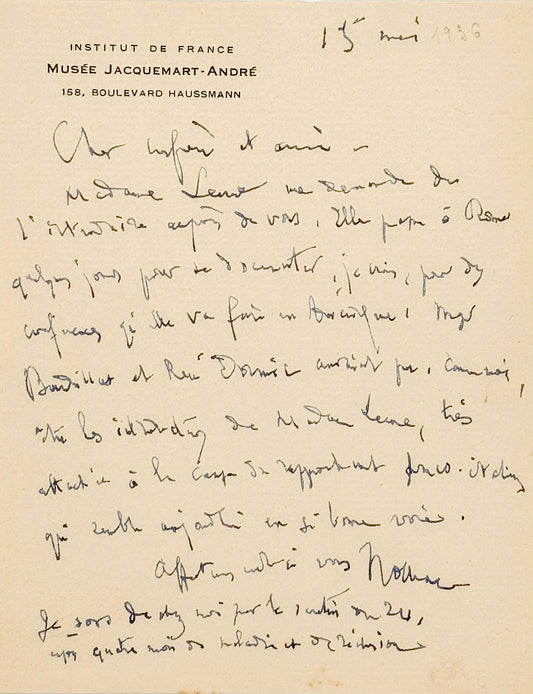 15 mai 1936
INSTITUT DE FRANCE
MUSÉE JACQUEMART-ANDRÉ
158, BOULEVARD HAUSSMANN
Cher confrère et ami –
Madame me demande de
l'introduire auprès de vous. Elle passe à Rome
quelques jours pour se documenter, je crois, pour des
conférences qu'elle va faire en Amérique. Mgr
Baudrillart et René Doumic auraient pu, comme moi,
être les introducteurs de Madame, très
attachée à la cause du rapprochement franco-italien
qui semble aujourd'hui en si bonne voie.
Affectueusement à vous Nolhac
Je sors de chez moi par le
après quatre mois de maladie et de réclusion